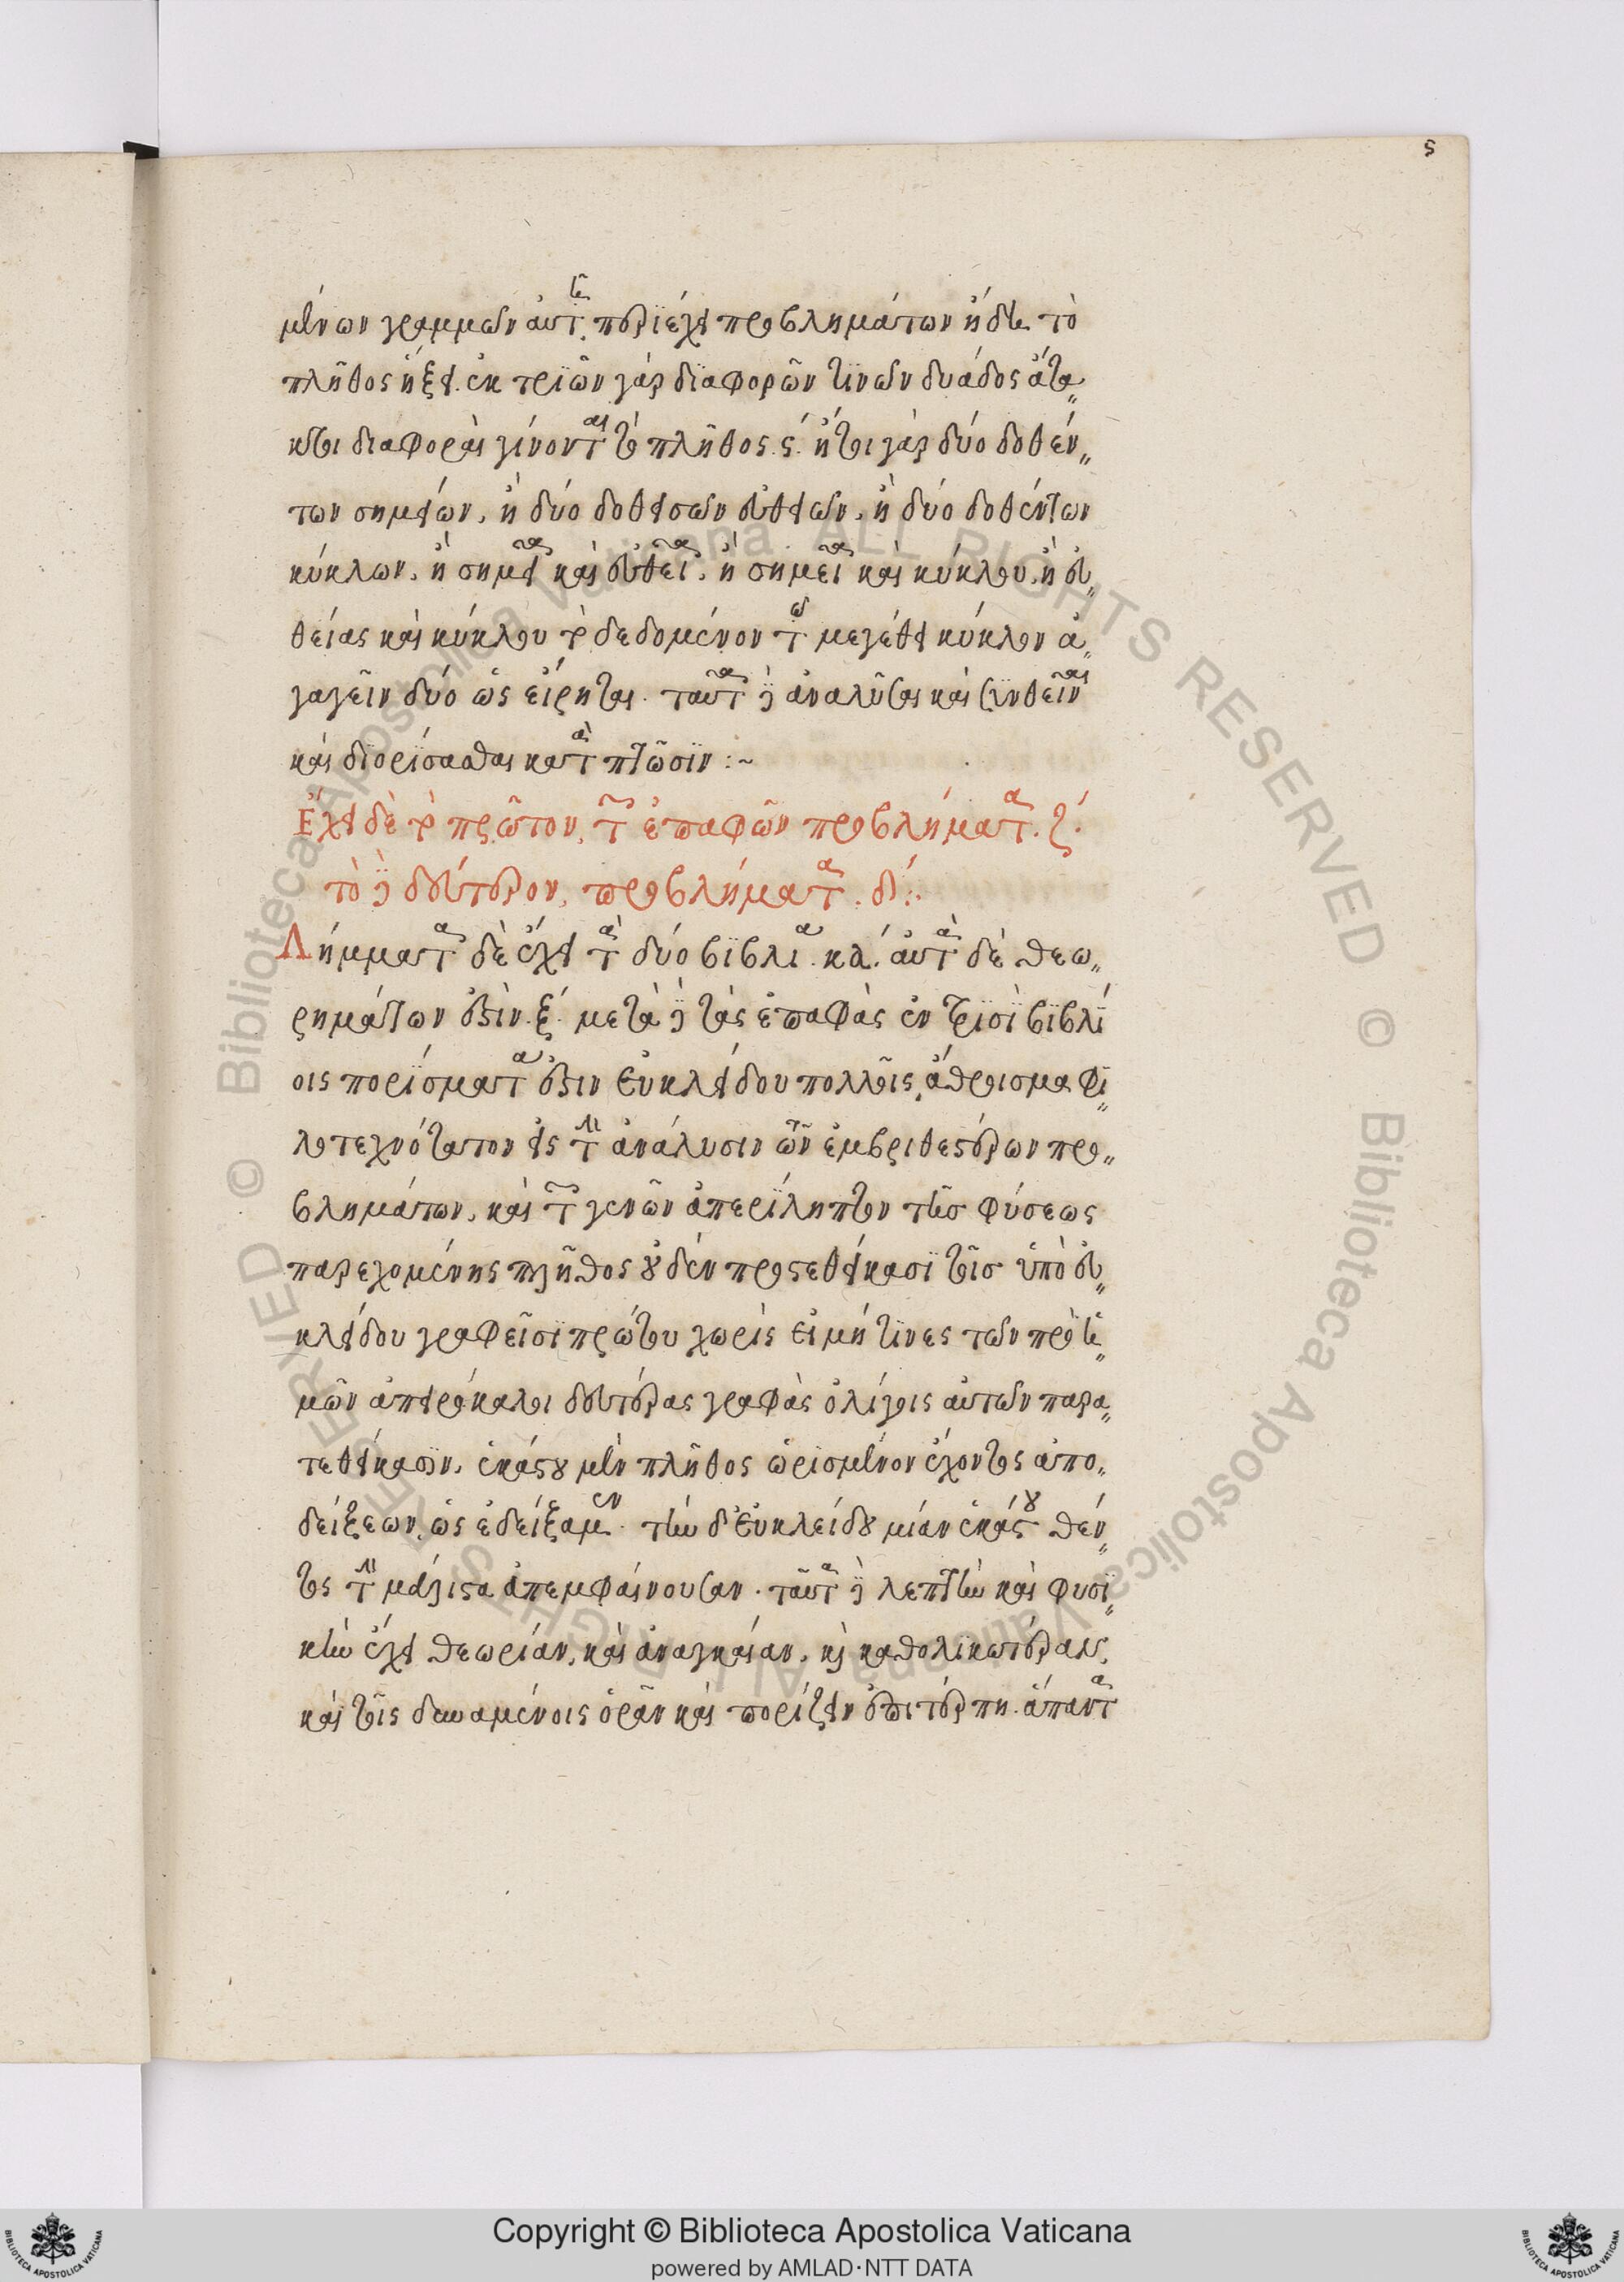 ϛ
μένων γραμμῶν αὐτη. περιέχει προβλημάτων ἤδη τὸ
πλῆθος ἥξει. ἐκ τριῶν γὰρ διαφορῶν τινῶν δυάδος ἄτα„
κτοι διαφοραὶ γίνονται τὸ πλῆθος ϛ́. ἤτοι γὰρ δύο δοθέν„
των σημείων, ἢ δύο δοθεισῶν εὐθειῶν, ἢ δύο δοθέντων
κύκλων, ἢ σημείου καὶ εὐθείας, ἢ σημείου καὶ κύκλου, ἢ εὐ„
θείας καὶ κύκλου τὸ δεδομένον τῶ μεγέθει κύκλον ἀ„
γαγεῖν δύο ὡς εἴρηται. ταῦτα δὲ ἀναλῦσαι καὶ συνθεῖναι
καὶ διορίσασθαι κατὰ πτῶσιν :~
Ἔχει δὲ τὸ πρῶτον, τῶν ἐπαφῶν προβλήματα. ζ́.
τὸ δὲ δεύτερον, προβλήματα. δ́:.
Λήμματα δὲ ἔχει τὰ δύο βιβλία. κα. αὐτὰ δὲ θεω„
ρημάτων ἐστὶν. ξ́. μετὰ δὲ τὰς ἐπαφὰς ἐν τρισὶ βιβλί
οις πορίσματα ἐστιν Εὐκλείδου πολλοῖς, ἄθροισμα φι„
λοτεχνότατον εἰς τὴν ἀνάλυσιν τῶν ἐμβριθεστέρων προ„
βλημάτων, καὶ τῶν γενῶν ἀπερίληπτον τῆς φύσεως
παρεχομένης πλῆθος οὐδέν προστεθείκασι τοῖς ὑπὸ εὐ„
κλείδου γραφεῖσι πρώτου χωρὶς εἰ μή τινες τῶν πρὸ ἡ„
μῶν ἀπειρόκαλοι δευτέρας γραφὰς ὀλίγοις αὐτῶν παρα„
τεθείκασιν, ἑκάστου μὲν πλῆθος ὡρισμένον ἔχοντος ἀπο„
δείξεων, ὡς ἐδείξαμεν. τὴν δ' Εὐκλείδου μίαν ἑκάστου θέν„
τος τὴν μάλιστα ἀπεμφαίνουσαν. ταῦτα δὲ λεπτὴν καὶ φυσι„
κὴν ἔχει θεωρίαν, καὶ ἀναγκαίαν, καὶ καθολικωτέραν,
καὶ τοῖς δυναμένοις ὁρᾶν καὶ πορίζειν ἐπιτερπῆ. ἅπαντα
Copyright © Biblioteca Apostolica Vaticana
powered by AMLAD·NTT DATA
© Biblioteca Apostolica Vaticana ALL RIGHTS RESERVED
© Biblioteca Apostolica Vaticana ALL RIGHTS RESERVED
BIBLIOTECA APOSTOLICA VATICANA
BIBLIOTECA APOSTOLICA VATICANA